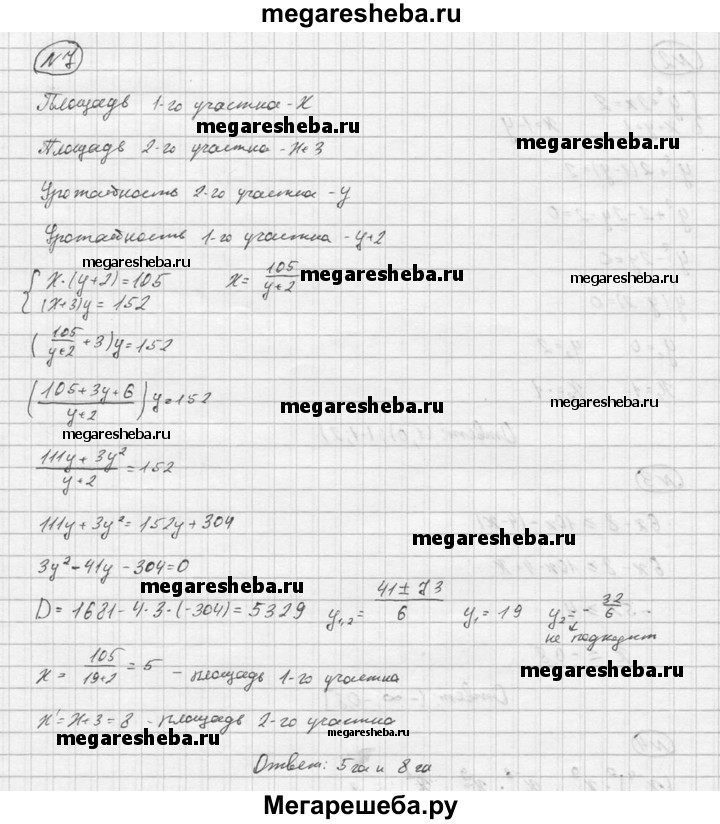 megaresheba.ru
№7
Площадь 1-го участка - x
megaresheba.ru
megaresheba.ru
Площадь 2-го участка - x+3
Урожайность 2-го участка - y
Урожайность 1-го участка - y+2
megaresheba.ru
{ x·(y+2)=105 x= 105/(y+2)
megaresheba.ru
megaresheba.ru
(x+3)y=152
(105/(y+2) + 3)y=152
((105+3y+6)/(y+2)) y=152
megaresheba.ru
megaresheba.ru
megaresheba.ru
(111y+3y²)/(y+2) =152
111y+3y²=152y+304
megaresheba.ru
3y²-41y-304=0
megaresheba.ru
D=1681-4·3·(-304)=5329 y₁,₂= (41±73)/6 y₁=19 y₂=-32/6
не подходит
x= 105/(19+2) =5 - площадь 1-го участка
megaresheba.ru
x'=x+3=8 - площадь 2-го участка
megaresheba.ru
megaresheba.ru
Ответ: 5 га и 8 га
Мегарешеба.ру